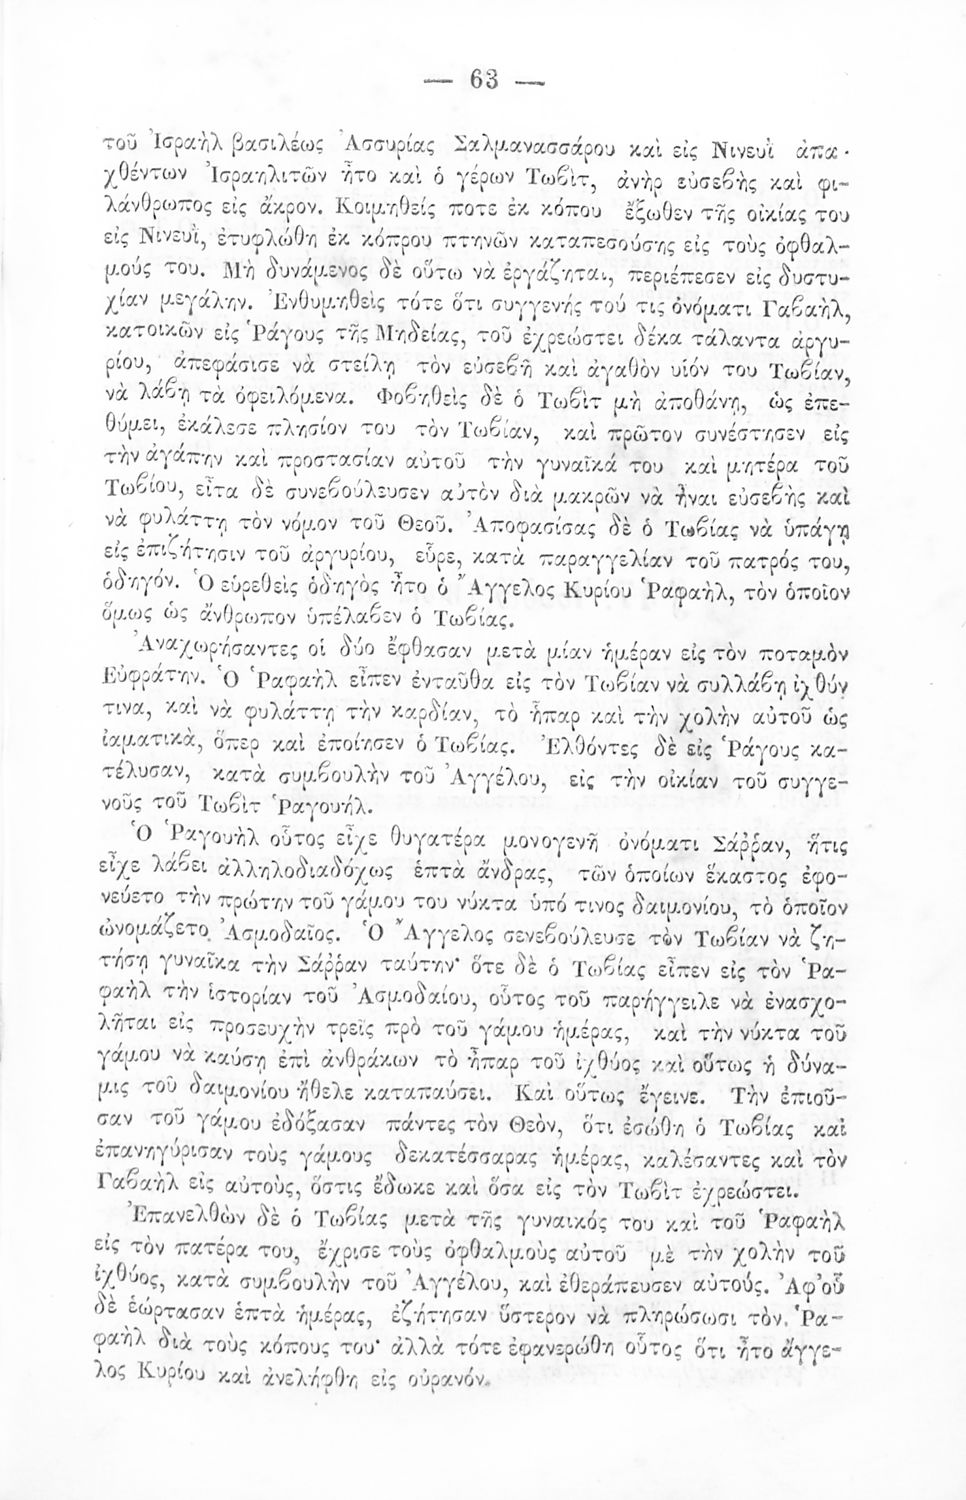 — 63 —
τοῦ Ἰσραὴλ βασιλέως Ἀσσυρίας Σαλμανασσάρου καὶ εἰς Νινευῒ ἀπα-
χθέντων Ἰσραηλιτῶν ἦτο καὶ ὁ γέρων Τωβὶτ, ἀνὴρ εὐσεβὴς καὶ φι-
λάνθρωπος εἰς ἄκρον. Κοιμηθείς ποτε ἐκ κόπου ἔξωθεν τῆς οἰκίας του
εἰς Νινευῒ, ἐτυφλώθη ἐκ κόπρου πτηνῶν καταπεσούσης εἰς τοὺς ὀφθαλ-
μούς του. Μὴ δυνάμενος δὲ οὕτω νὰ ἐργάζηται, περιέπεσεν εἰς δυστυ-
χίαν μεγάλην. Ἐνθυμηθεὶς τότε ὅτι συγγενής τού τις ὀνόματι Γαβαὴλ,
κατοικῶν εἰς Ῥάγους τῆς Μηδείας, τοῦ ἐχρεώστει δέκα τάλαντα ἀργυ-
ρίου, ἀπεφάσισε νὰ στείλῃ τὸν εὐσεβῆ καὶ ἀγαθὸν υἱόν του Τωβίαν,
νὰ λάβῃ τὰ ὀφειλόμενα. Φοβηθεὶς δὲ ὁ Τωβὶτ μὴ ἀποθάνῃ, ὡς ἐπε-
θύμει, ἐκάλεσε πλησίον του τὸν Τωβίαν, καὶ πρῶτον συνέστησεν εἰς
τὴν ἀγάπην καὶ προστασίαν αὐτοῦ τὴν γυναῖκά του καὶ μητέρα τοῦ
Τωβίου, εἶτα δὲ συνεβούλευσεν αὐτὸν διὰ μακρῶν νὰ ἦναι εὐσεβὴς καὶ
νὰ φυλάττῃ τὸν νόμον τοῦ Θεοῦ. Ἀποφασίσας δὲ ὁ Τωβίας νὰ ὑπάγῃ
εἰς ἐπιζήτησιν τοῦ ἀργυρίου, εὗρε, κατὰ παραγγελίαν τοῦ πατρός του,
ὁδηγόν. Ὁ εὑρεθεὶς ὁδηγὸς ἦτο ὁ Ἄγγελος Κυρίου Ῥαφαὴλ, τὸν ὁποῖον
ὅμως ὡς ἄνθρωπον ὑπέλαβεν ὁ Τωβίας.
Ἀναχωρήσαντες οἱ δύο ἔφθασαν μετὰ μίαν ἡμέραν εἰς τὸν ποταμὸν
Εὐφράτην. Ὁ Ῥαφαὴλ εἶπεν ἐνταῦθα εἰς τὸν Τωβίαν νὰ συλλάβῃ ἰχθύν
τινα, καὶ νὰ φυλάττῃ τὴν καρδίαν, τὸ ἧπαρ καὶ τὴν χολὴν αὐτοῦ ὡς
ἰαματικὰ, ὅπερ καὶ ἐποίησεν ὁ Τωβίας. Ἐλθόντες δὲ εἰς Ῥάγους κα-
τέλυσαν, κατὰ συμβουλὴν τοῦ Ἀγγέλου, εἰς τὴν οἰκίαν τοῦ συγγε-
νοῦς τοῦ Τωβὶτ Ῥαγουήλ.
Ὁ Ῥαγουὴλ οὗτος εἶχε θυγατέρα μονογενῆ ὀνόματι Σάῤῥαν, ἥτις
εἶχε λάβει ἀλληλοδιαδόχως ἑπτὰ ἄνδρας, τῶν ὁποίων ἕκαστος ἐφο-
νεύετο τὴν πρώτην τοῦ γάμου του νύκτα ὑπό τινος δαιμονίου, τὸ ὁποῖον
ὠνομάζετο Ἀσμοδαῖος. Ὁ Ἄγγελος σενεβούλευσε τὸν Τωβίαν νὰ ζη-
τήσῃ γυναῖκα τὴν Σάῤῥαν ταύτην· ὅτε δὲ ὁ Τωβίας εἶπεν εἰς τὸν Ῥα-
φαὴλ τὴν ἱστορίαν τοῦ Ἀσμοδαίου, οὗτος τοῦ παρήγγειλε νὰ ἐνασχο-
λῆται εἰς προσευχὴν τρεῖς πρὸ τοῦ γάμου ἡμέρας, καὶ τὴν νύκτα τοῦ
γάμου νὰ καύσῃ ἐπὶ ἀνθράκων τὸ ἧπαρ τοῦ ἰχθύος καὶ οὕτως ἡ δύνα-
μις τοῦ δαιμονίου ἤθελε καταπαύσει. Καὶ οὕτως ἔγεινε. Τὴν ἐπιοῦ-
σαν τοῦ γάμου ἐδόξασαν πάντες τὸν Θεὸν, ὅτι ἐσώθη ὁ Τωβίας καὶ
ἐπανηγύρισαν τοὺς γάμους δεκατέσσαρας ἡμέρας, καλέσαντες καὶ τὸν
Γαβαὴλ εἰς αὐτοὺς, ὅστις ἔδωκε καὶ ὅσα εἰς τὸν Τωβὶτ ἐχρεώστει.
Ἐπανελθὼν δὲ ὁ Τωβίας μετὰ τῆς γυναικός του καὶ τοῦ Ῥαφαὴλ
εἰς τὸν πατέρα του, ἔχρισε τοὺς ὀφθαλμοὺς αὐτοῦ μὲ τὴν χολὴν τοῦ
ἰχθύος, κατὰ συμβουλὴν τοῦ Ἀγγέλου, καὶ ἐθεράπευσεν αὐτούς. Ἀφ’ οὗ
δὲ ἑώρτασαν ἑπτὰ ἡμέρας, ἐζήτησαν ὕστερον νὰ πληρώσωσι τὸν Ῥα-
φαὴλ διὰ τοὺς κόπους του· ἀλλὰ τότε ἐφανερώθη οὗτος ὅτι ἦτο ἄγγε-
λος Κυρίου καὶ ἀνελήφθη εἰς οὐρανόν.